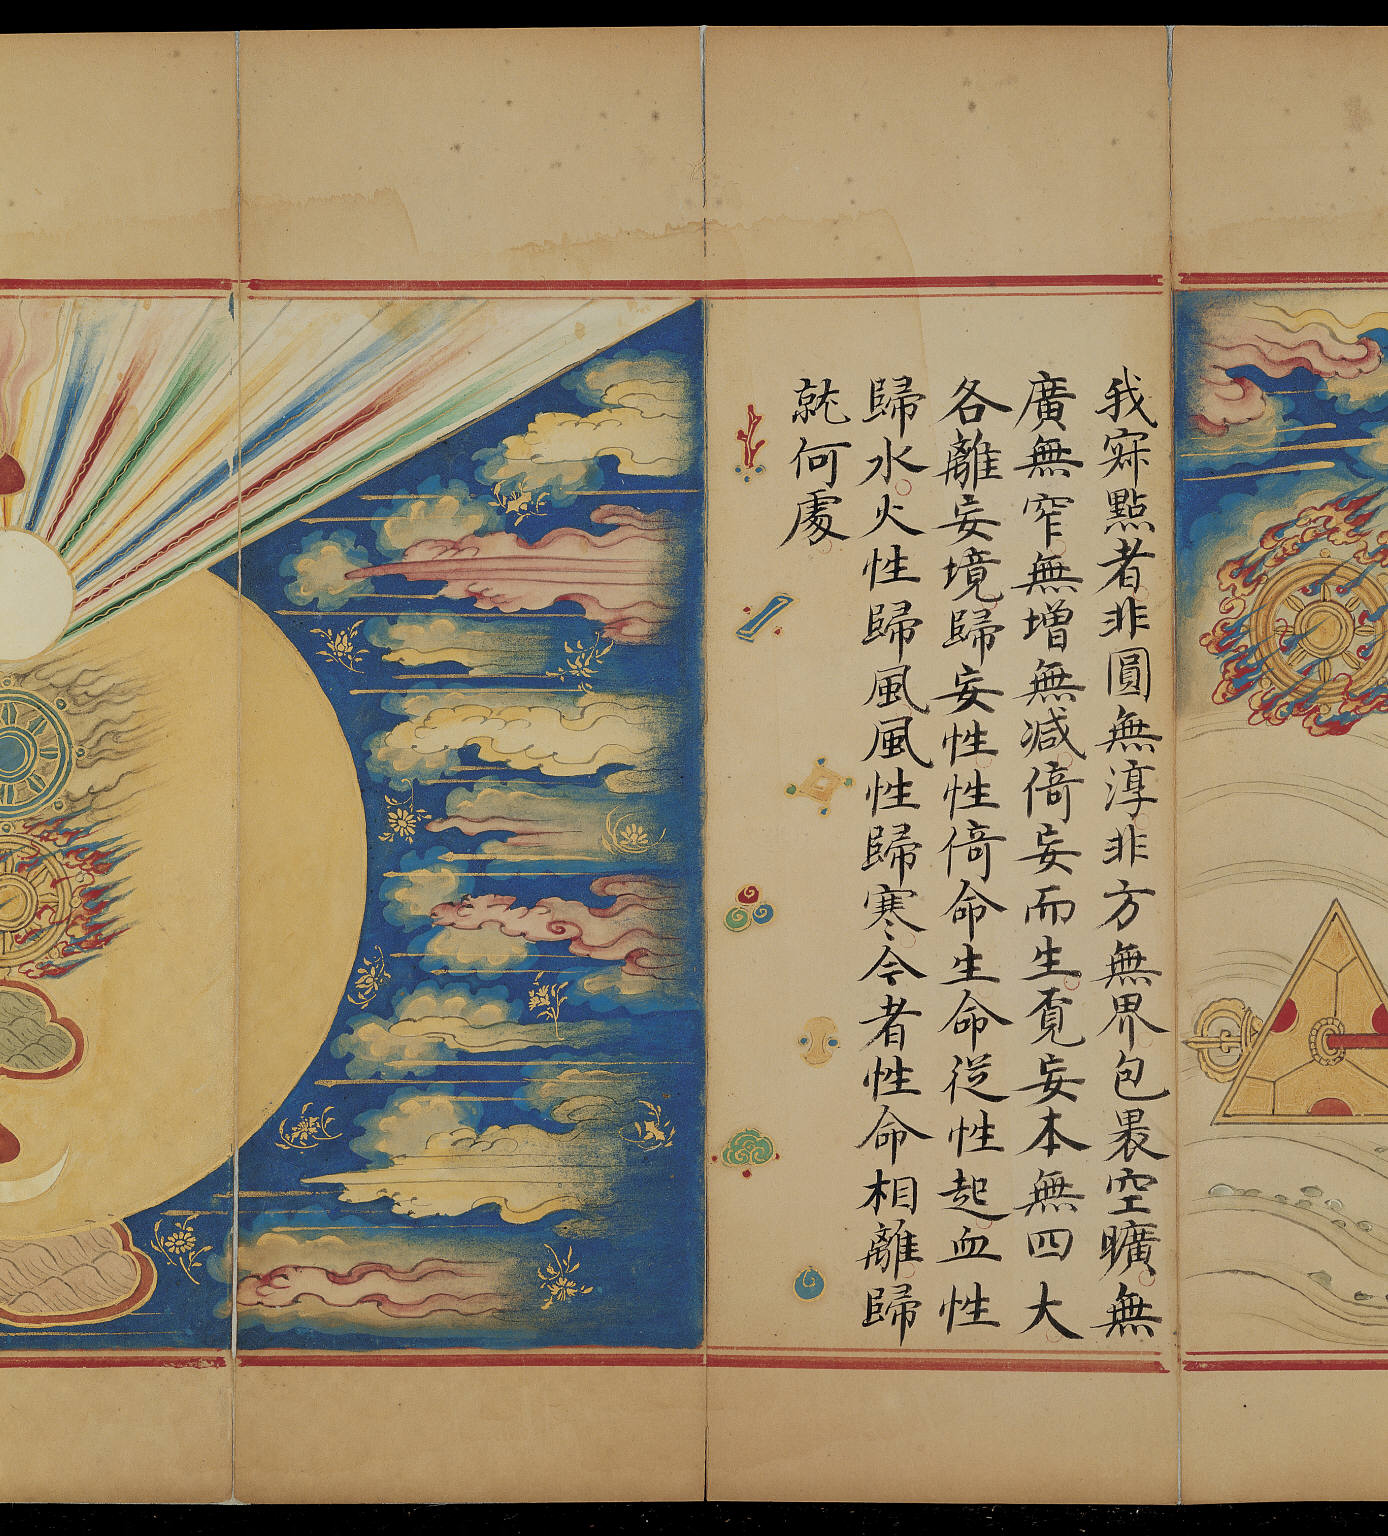 我寂點者非圓無淳非方無界包褁空曠無
廣無窄無增無减倚妄而生覔妄本無四大
各離妄境歸妄性性倚命生命從性起血性
歸水火性歸風風性歸寒今者性命相離歸
就何處